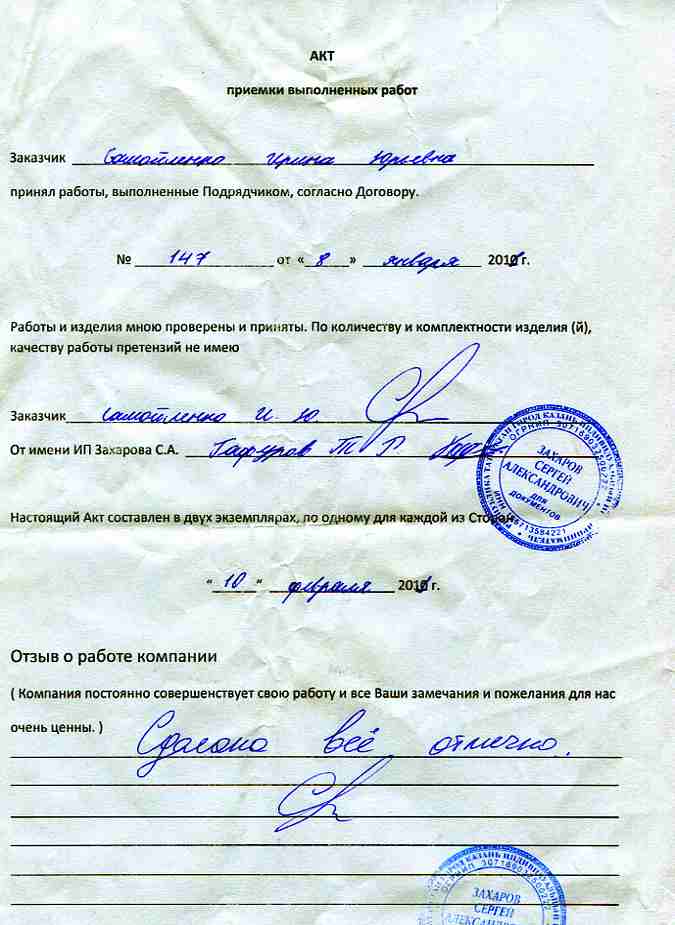 АКТ
приемки выполненных работ
Заказчик Самойленко Ирина Юрьевна
принял работы, выполненные Подрядчиком, согласно Договору.
№ 147 от «8» января 2011 г.
Работы и изделия мною проверены и приняты. По количеству и комплектности изделия (й),
качеству работы претензий не имею
Заказчик Самойленко И. Ю.
От имени ИП Захарова С.А. Гафуров Т Р
ГОРОД КАЗАНЬ ИНДИВИДУАЛЬНЫЙ
ОГРНИП
ЗАХАРОВ
СЕРГЕЙ
АЛЕКСАНДРОВИЧ
для
документов
Настоящий Акт составлен в двух экземплярах, по одному для каждой из Сторон
"10" февраля 2011 г.
Отзыв о работе компании
( Компания постоянно совершенствует свою работу и все Ваши замечания и пожелания для нас
очень ценны. )
Сделано всё отлично.
ГОРОД КАЗАНЬ ИНДИВИДУАЛЬНЫЙ
ОГРНИП
ЗАХАРОВ
СЕРГЕЙ